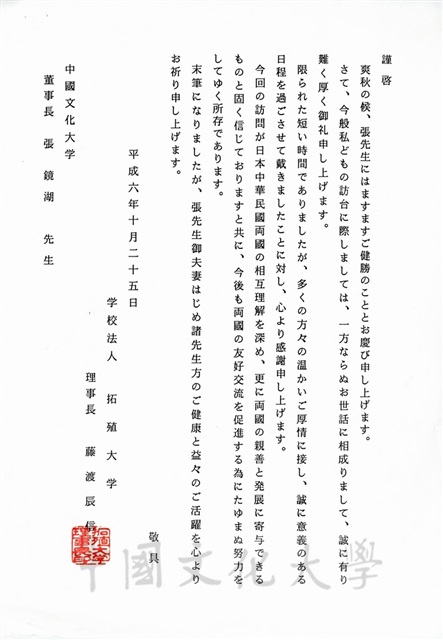 謹啓
爽秋の候、張先生にはますますご健勝のこととお慶び申し上げます。
さて、今般私どもの訪台に際しましては、一方ならぬお世話に相成りまして、誠に有り
難く厚く御礼申し上げます。
限られた短い時間でありましたが、多くの方々の温かいご厚情に接し、誠に意義のある
日程を過ごさせて戴きましたことに対し、心より感謝申し上げます。
今回の訪問が日本中華民國両國の相互理解を深め、更に両國の親善と発展に寄与できる
ものと固く信じておりますと共に、今後も両國の友好交流を促進する為にたゆまぬ努力を
してゆく所存であります。
末筆になりましたが、張先生御夫妻はじめ諸先生方のご健康と益々のご活躍を心より
お祈り申し上げます。
敬具
平成六年十月二十五日
学校法人 拓殖大学
理事長 藤渡辰信
中國文化大学
董事長 張鏡湖 先生
中國文化大學